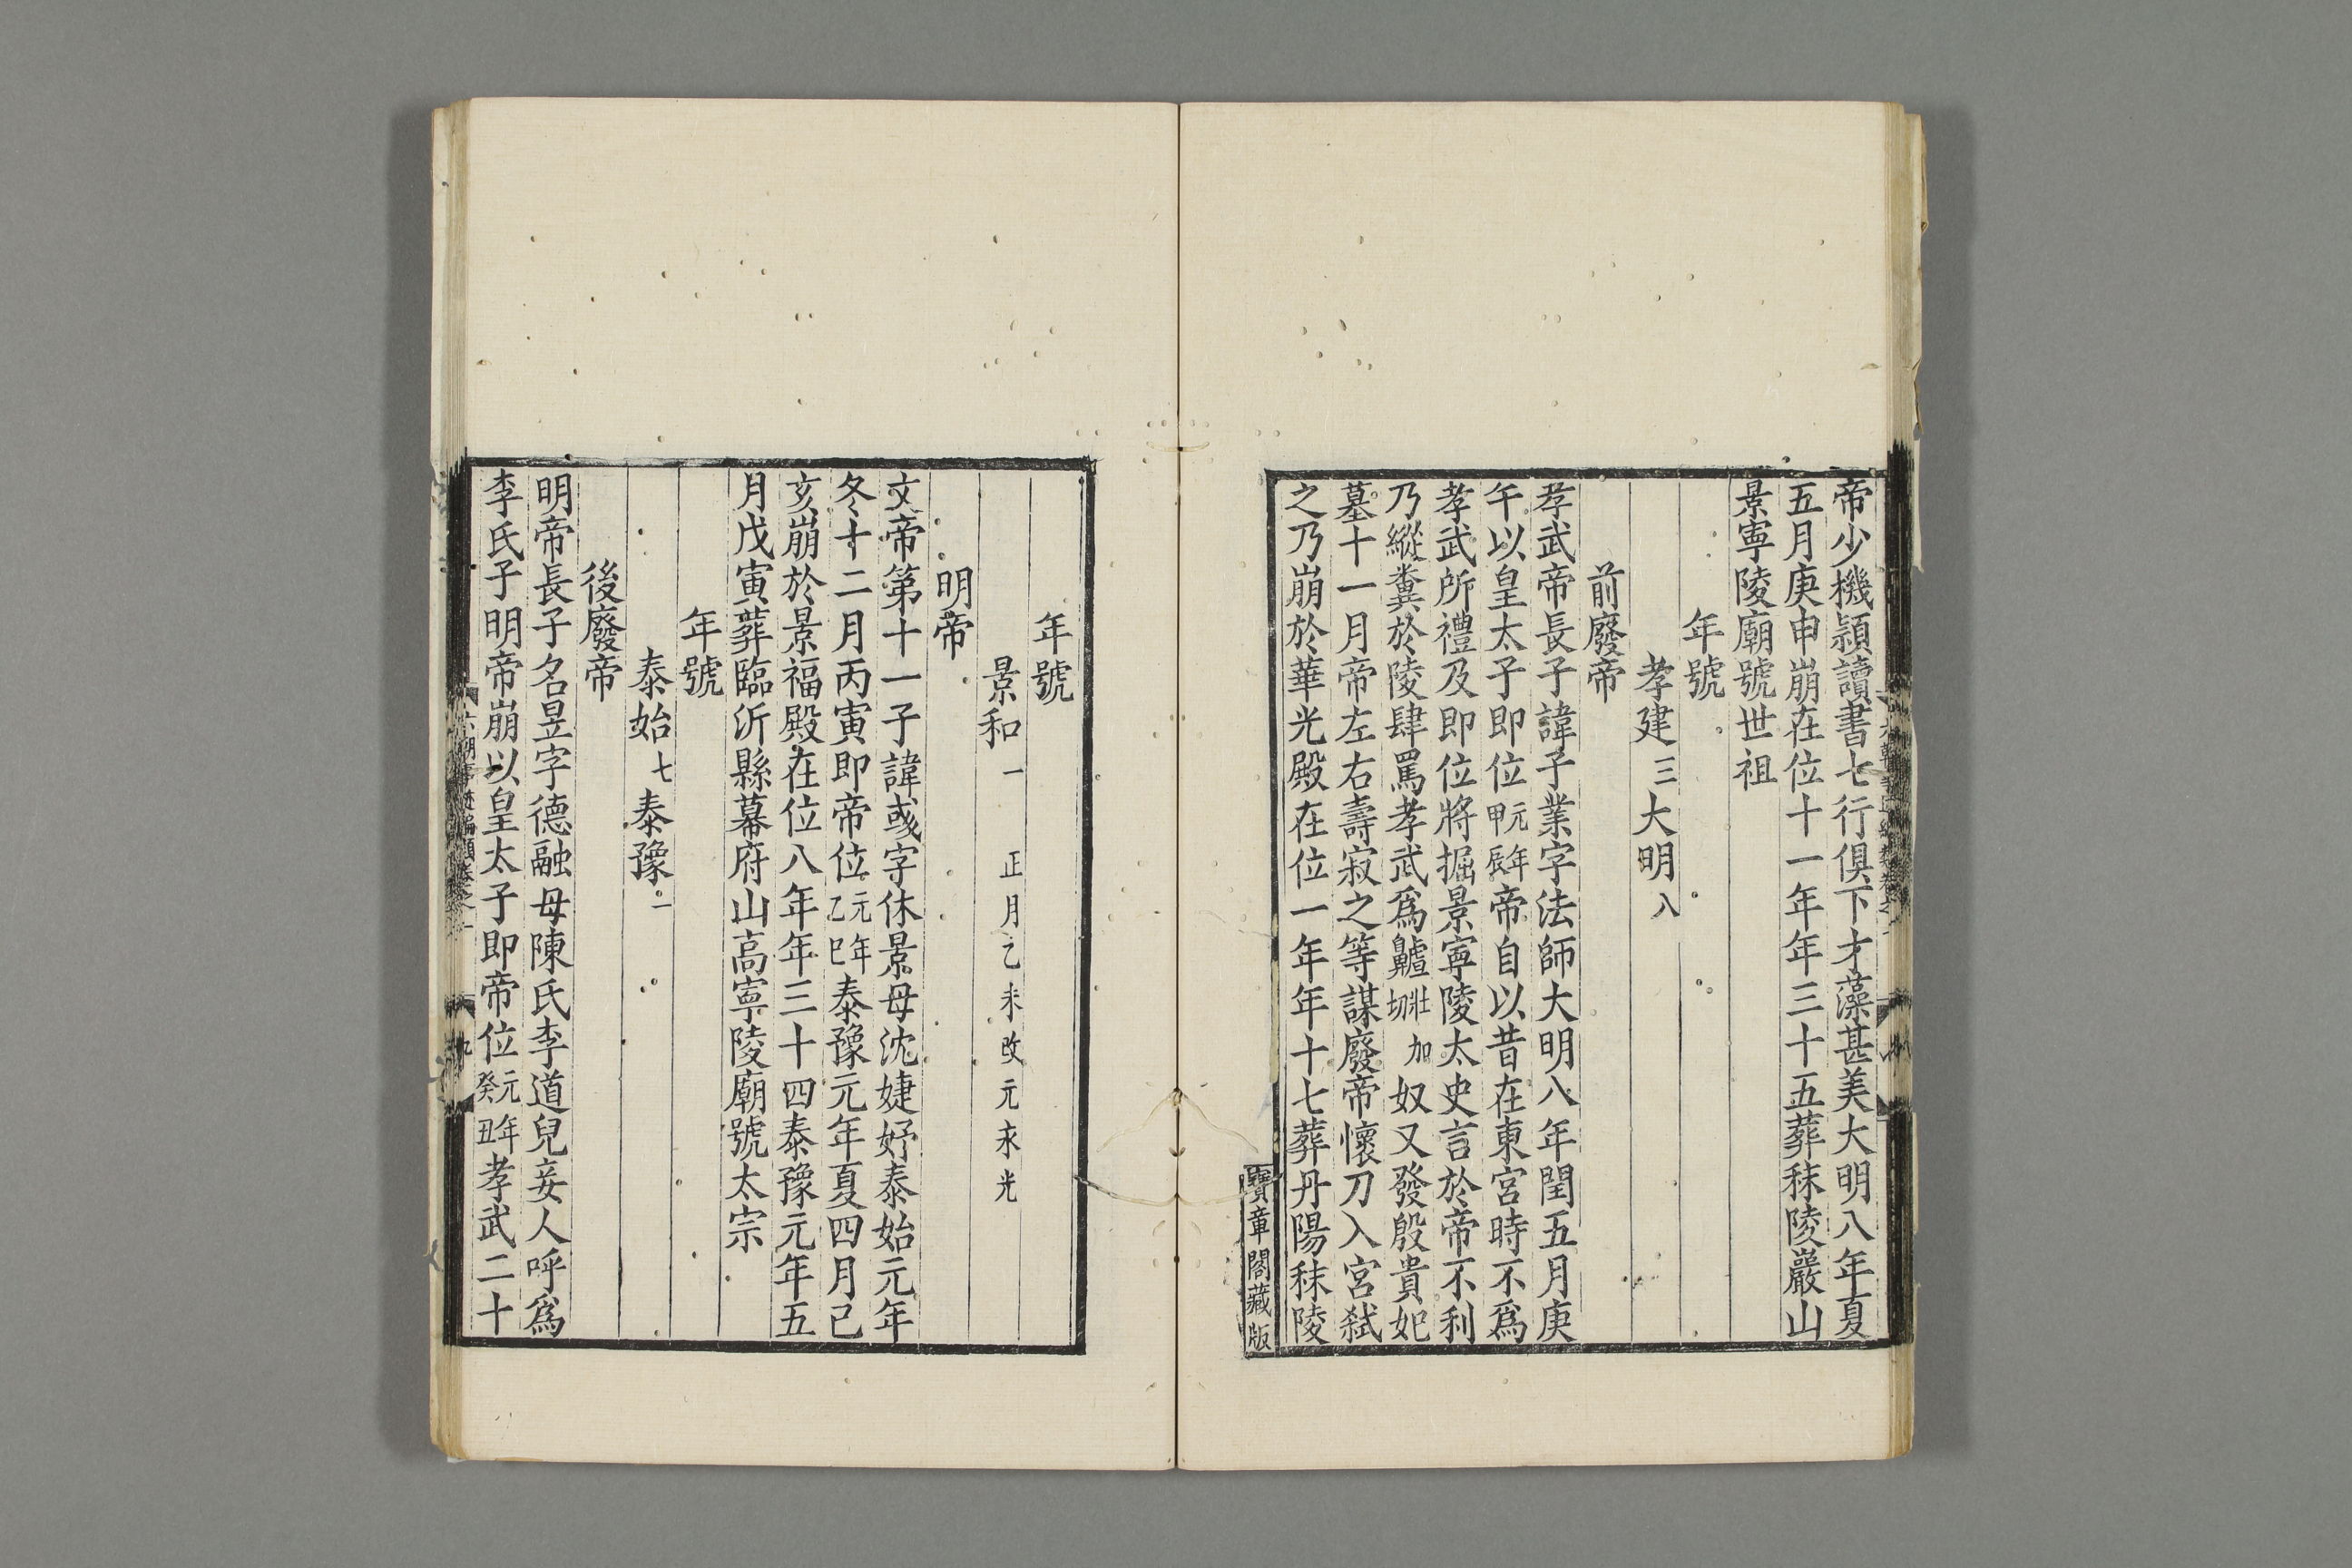 帝少機穎讀書七行俱下才藻甚美大明八年夏
五月庚申崩在位十一年年三十五葬秣陵巖山
景寧陵廟號世祖
年號
孝建三大明八
前廢帝
孝武帝長子諱子業字法師大明八年閏五月庚
午以皇太子即位元年甲辰帝自以昔在東宮時不爲
孝武所禮及即位將掘景寧陵太史言於帝不利
乃縱糞於陵肆罵孝武爲齇壯加切奴又發殷貴妃
墓十一月帝左右壽寂之等謀廢帝懷刀入宮弑
之乃崩於華光殿在位一年年十七葬丹陽秣陵
寶章閣藏版
年號
景和一正月乙未改元永光
明帝
文帝第十一子諱彧字休景母沈婕妤泰始元年
冬十二月丙寅即帝位元年乙巳泰豫元年夏四月己
亥崩於景福殿在位八年年三十四泰豫元年五
月戊寅葬臨沂縣幕府山高寧陵廟號太宗
年號
泰始七泰豫一
後廢帝
明帝長子名昱字德融母陳氏李道兒妾人呼爲
李氏子明帝崩以皇太子即帝位元年癸丑孝武二十
六朝事迹編類卷之一
九